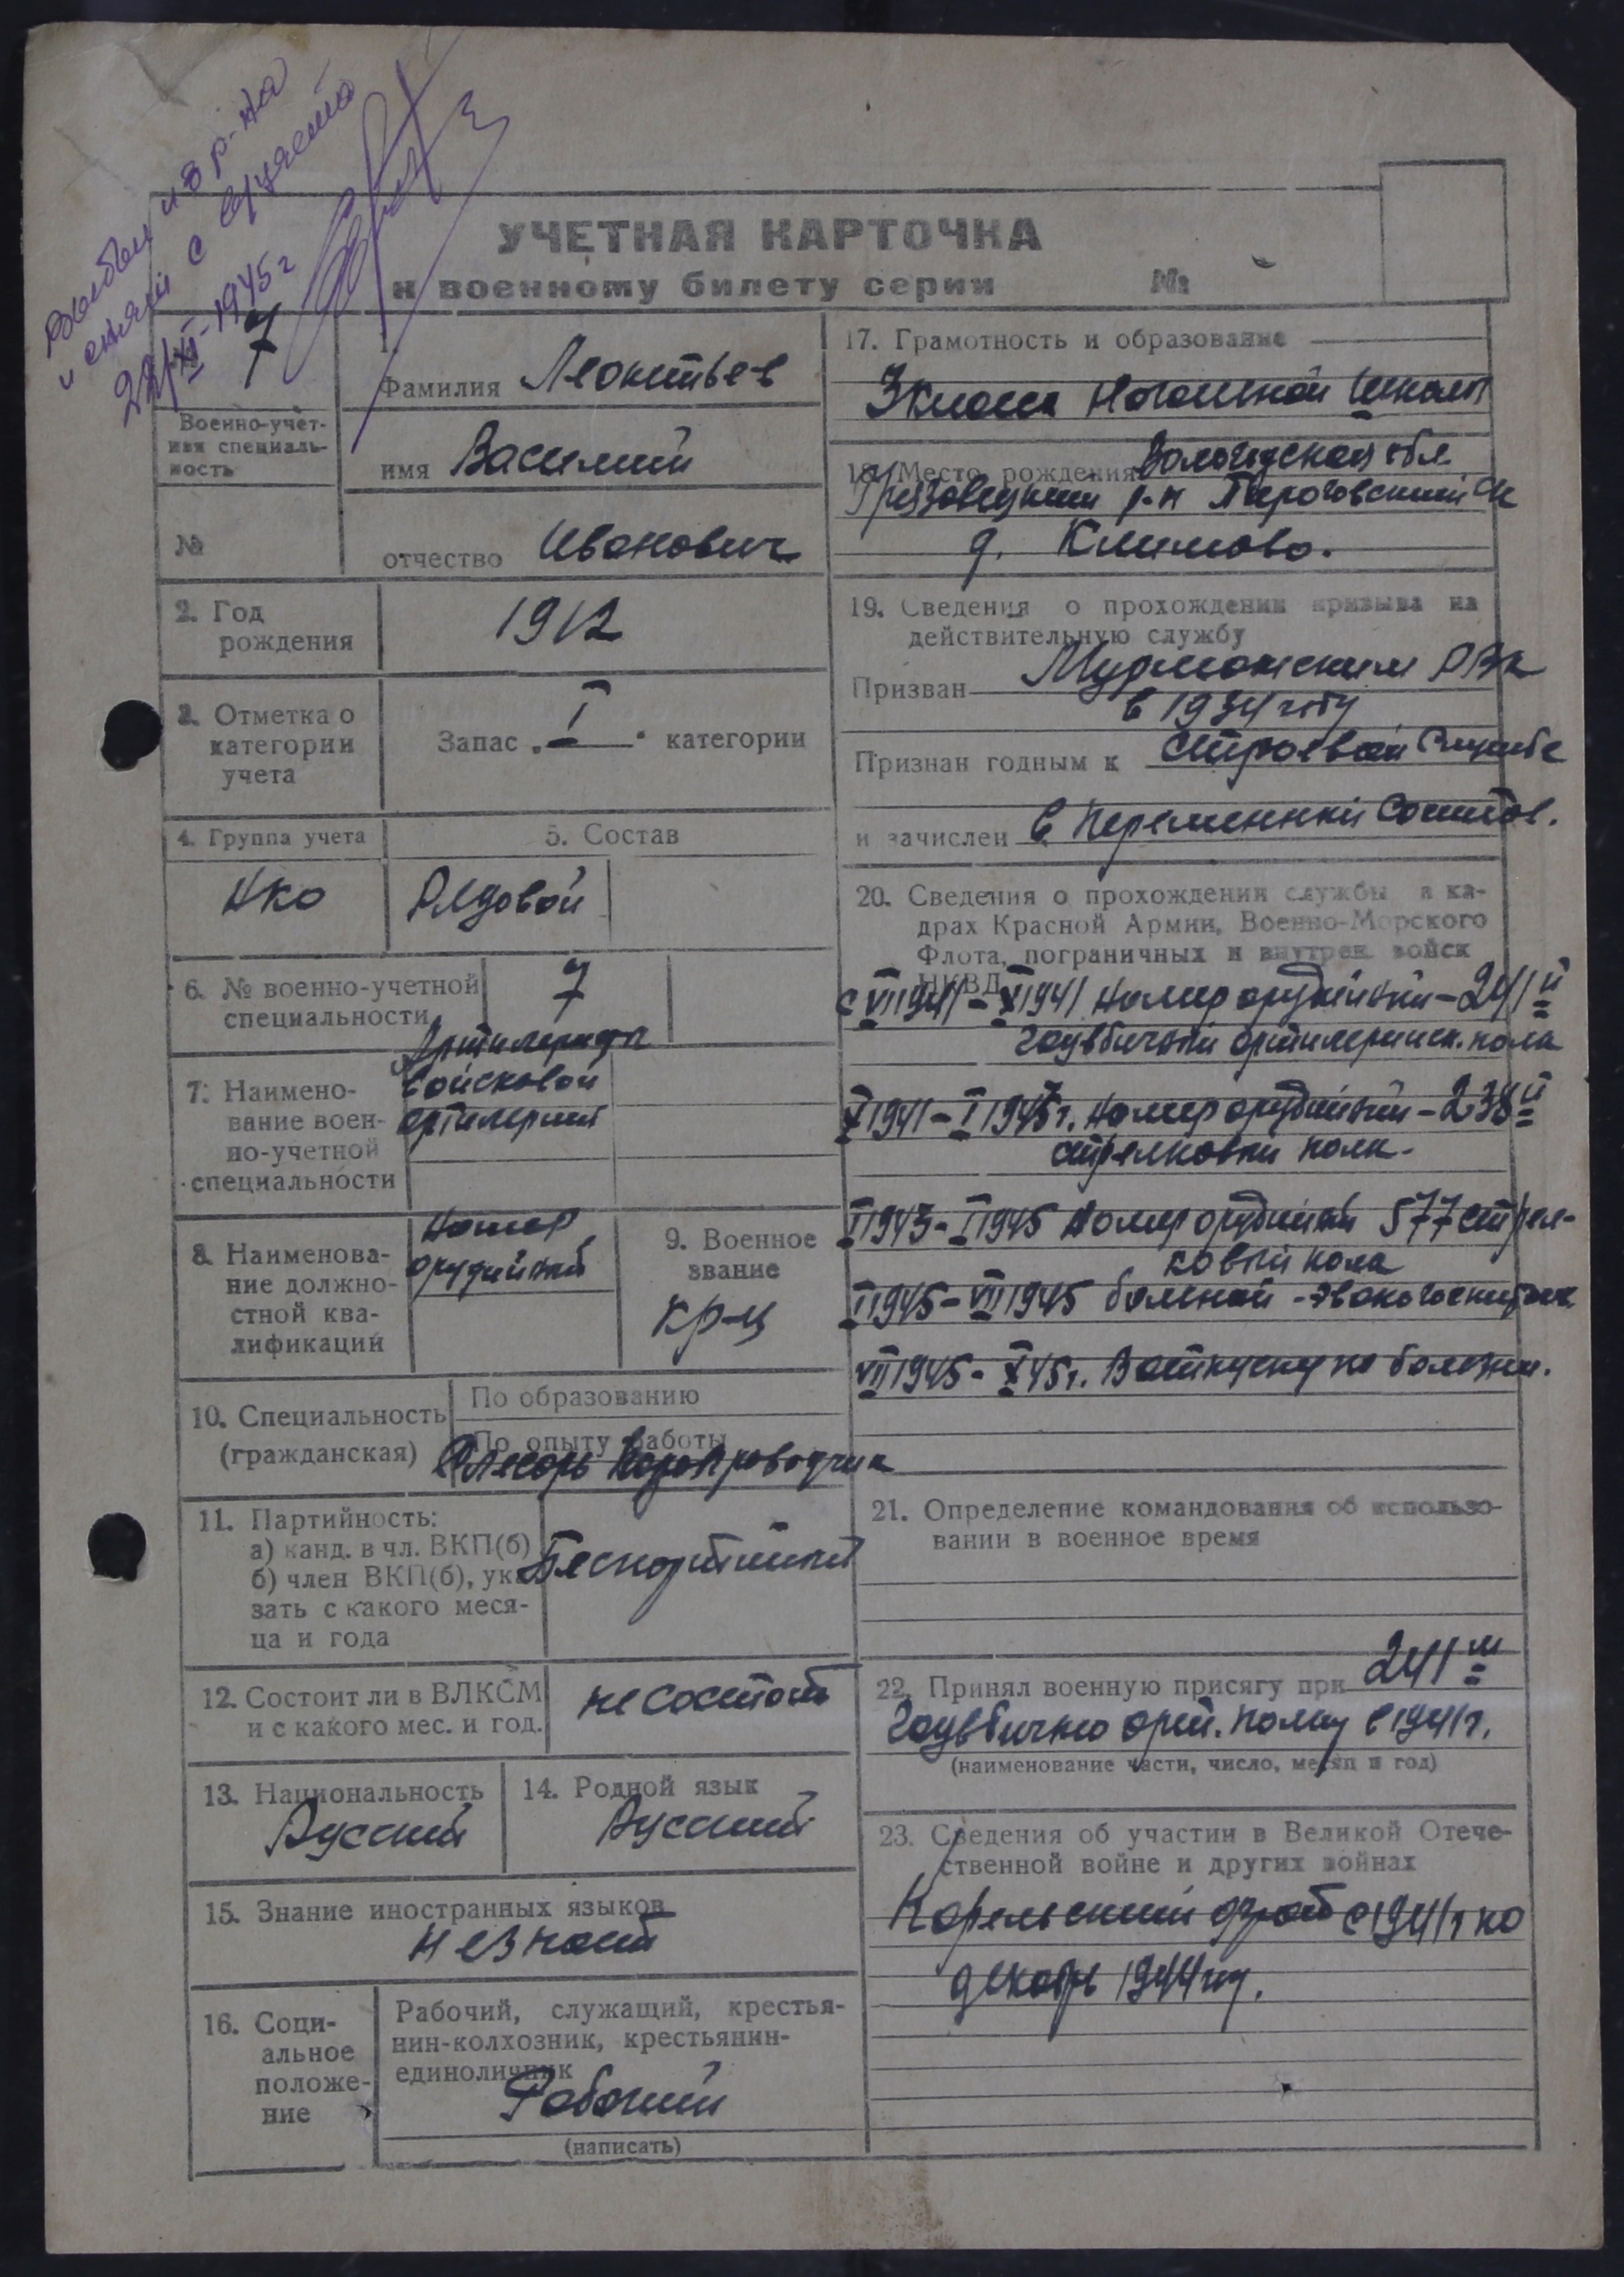 Выбыл из р-на
и снят с вручета
22/XI-1945 г
УЧЕТНАЯ КАРТОЧКА
к военному билету серии №
7
Военно-учет-
ная специаль-
ность
№
1.
Фамилия Леонтьев
имя Василий
отчество Иванович
2. Год
рождения
1912
3. Отметка о
категории
учета
Запас „I“ категории
4. Группа учета
НКО
5. Состав
Рядовой
6. № военно-учетной
специальности
7
7. Наимено-
вание воен-
но-учетной
специальности
войсковой
артилерии
8. Наименова-
ние должно-
стной ква-
лификации
Номер
орудийный
9. Военное
звание
кр-ц
10. Специальность
(гражданская)
По образованию
По опыту работы
Слесарь водопроводчик
11. Партийность:
а) канд. в чл. ВКП(б)
б) член ВКП(б), ука-
зать с какого меся-
ца и года
Беспартийный
12. Состоит ли в ВЛКСМ
и с какого мес. и год.
не состоит
13. Национальность
Русский
14. Родной язык
Русский
15. Знание иностранных языков
не знает
16. Соци-
альное
положе-
ние
Рабочий, служащий, крестья-
нин-колхозник, крестьянин-
единоличник
Рабочий
(написать)
17. Грамотность и образование
3 класса начальной школы
18. Место рождения Вологодская обл.
Грязовецкий р-н Пироговский с/с
д. Климово.
19. Сведения о прохождении призыва на
действительную службу
Призван Мурманским РВК
в 1934 году
Признан годным к строевой службе
и зачислен в переменный состав.
20. Сведения о прохождении службы в ка-
драх Красной Армии, Военно-Морского
Флота, пограничных и внутрен. войск
НКВД
с VII 1941 - X 1941 номер орудийный - 241й
гаубичный артилерииск. полк
X 1941 - I 1943 г. номер орудийный - 238й
стрелковый полк.
I 1943 - I 1945 номер орудийный 577 стрел-
ковый полк
I 1945 - VII 1945 больной - эвакогоспиталь
VII 1945 - X 45 г. В отпуску по болезни.
21. Определение командования об использо-
вании в военное время
22. Принял военную присягу при 241м
гаубично арт. полку в 1941 г.
(наименование части, число, месяц и год)
23. Сведения об участии в Великой Отече-
ственной войне и других войнах
Карельский фронт с 1941 г по
декабрь 1944 году.